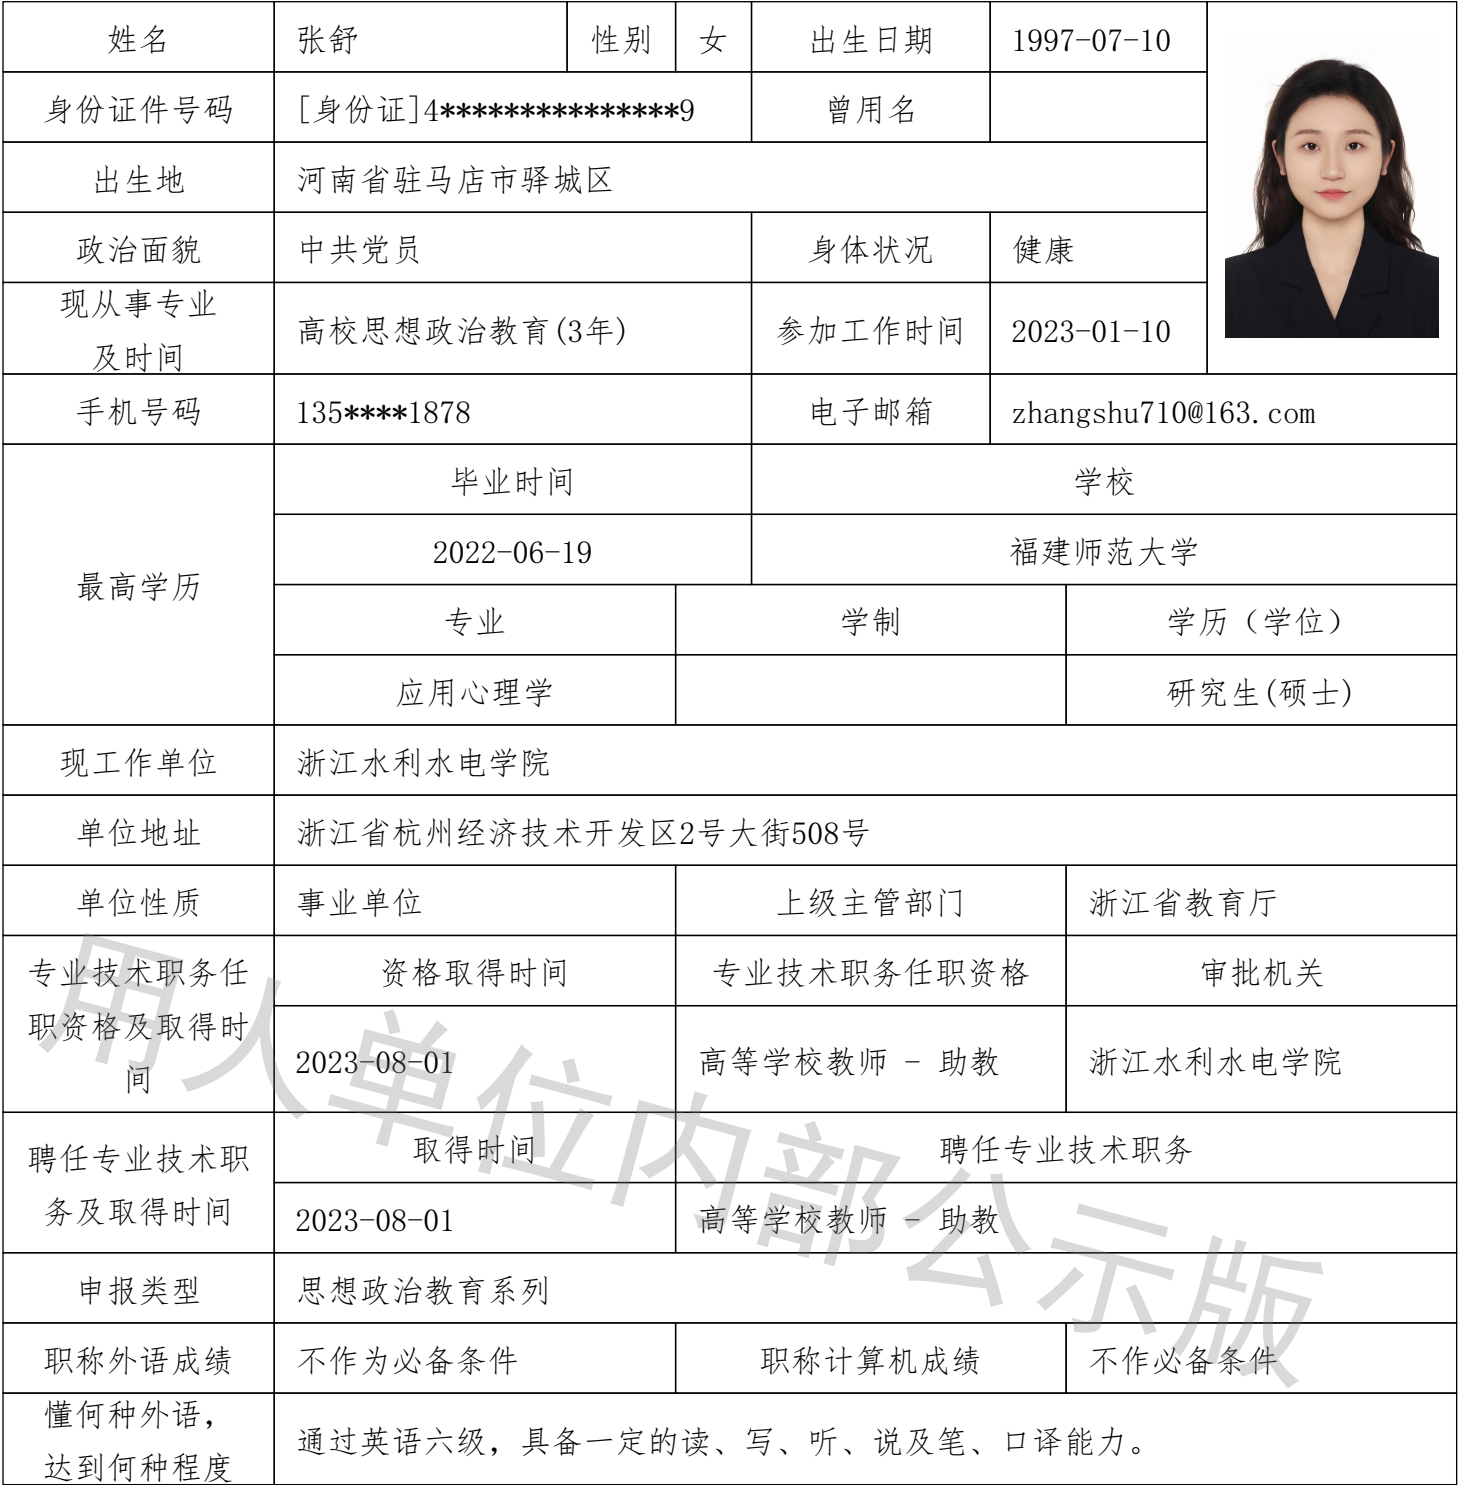 姓名 张舒 性别 女 出生日期 1997-07-10
身份证件号码 [身份证]4***************9 曾用名
出生地 河南省驻马店市驿城区
政治面貌 中共党员 身体状况 健康
现从事专业
及时间 高校思想政治教育(3年) 参加工作时间 2023-01-10
手机号码 135****1878 电子邮箱 zhangshu710@163.com
最高学历
毕业时间 学校
2022-06-19 福建师范大学
专业 学制 学历（学位）
应用心理学 研究生(硕士)
现工作单位 浙江水利水电学院
单位地址 浙江省杭州经济技术开发区2号大街508号
单位性质 事业单位 上级主管部门 浙江省教育厅
专业技术职务任
职资格及取得时
间
资格取得时间 专业技术职务任职资格 审批机关
2023-08-01 高等学校教师 - 助教 浙江水利水电学院
聘任专业技术职
务及取得时间
取得时间 聘任专业技术职务
2023-08-01 高等学校教师 - 助教
申报类型 思想政治教育系列
职称外语成绩 不作为必备条件 职称计算机成绩 不作必备条件
懂何种外语，
达到何种程度 通过英语六级，具备一定的读、写、听、说及笔、口译能力。
用人单位内部公示版